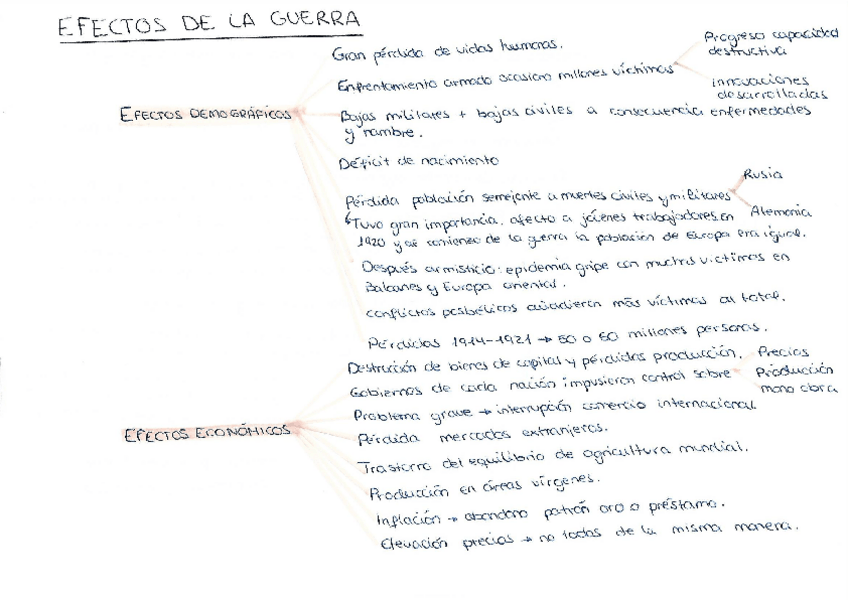 EFECTOS DE LA GUERRA
EFECTOS DEMOGRÁFICOS
Gran pérdida de vidas humanas.
Enfrentamiento armado ocasiono millones víctimas
Progreso capacidad
destructiva
innovaciones
desarrolladas
Bajas militares + bajas civiles a consecuencia enfermedades
y hambre.
Déficit de nacimiento
Pérdida población semejante a muertes civiles y militares
Rusia
Alemania
Tuvo gran importancia, afecto a jóvenes trabajadores, en
1920 y al comienzo de la guerra la población de Europa era igual.
Después armisticio: epidemia gripe con muchas victimas en
Balcanes y Europa oriental.
conflictos posbélicos añadieron más víctimas al total.
Pérdidas 1914-1921 → 50 o 60 millones personas.
EFECTOS ECONÓMICOS
Destrucción de bienes de capital y pérdidas producción.
Gobiernos de cada nación impusieron control sobre
Precios
Producción
mano obra
Problema grave → interrupción comercio internacional
Pérdida mercados extranjeros.
Trastorno del equilibrio de agricultura mundial.
Producción en áreas vírgenes.
Inflación → abandono patrón oro o préstamo.
Elevación precios → no todos de la misma manera.